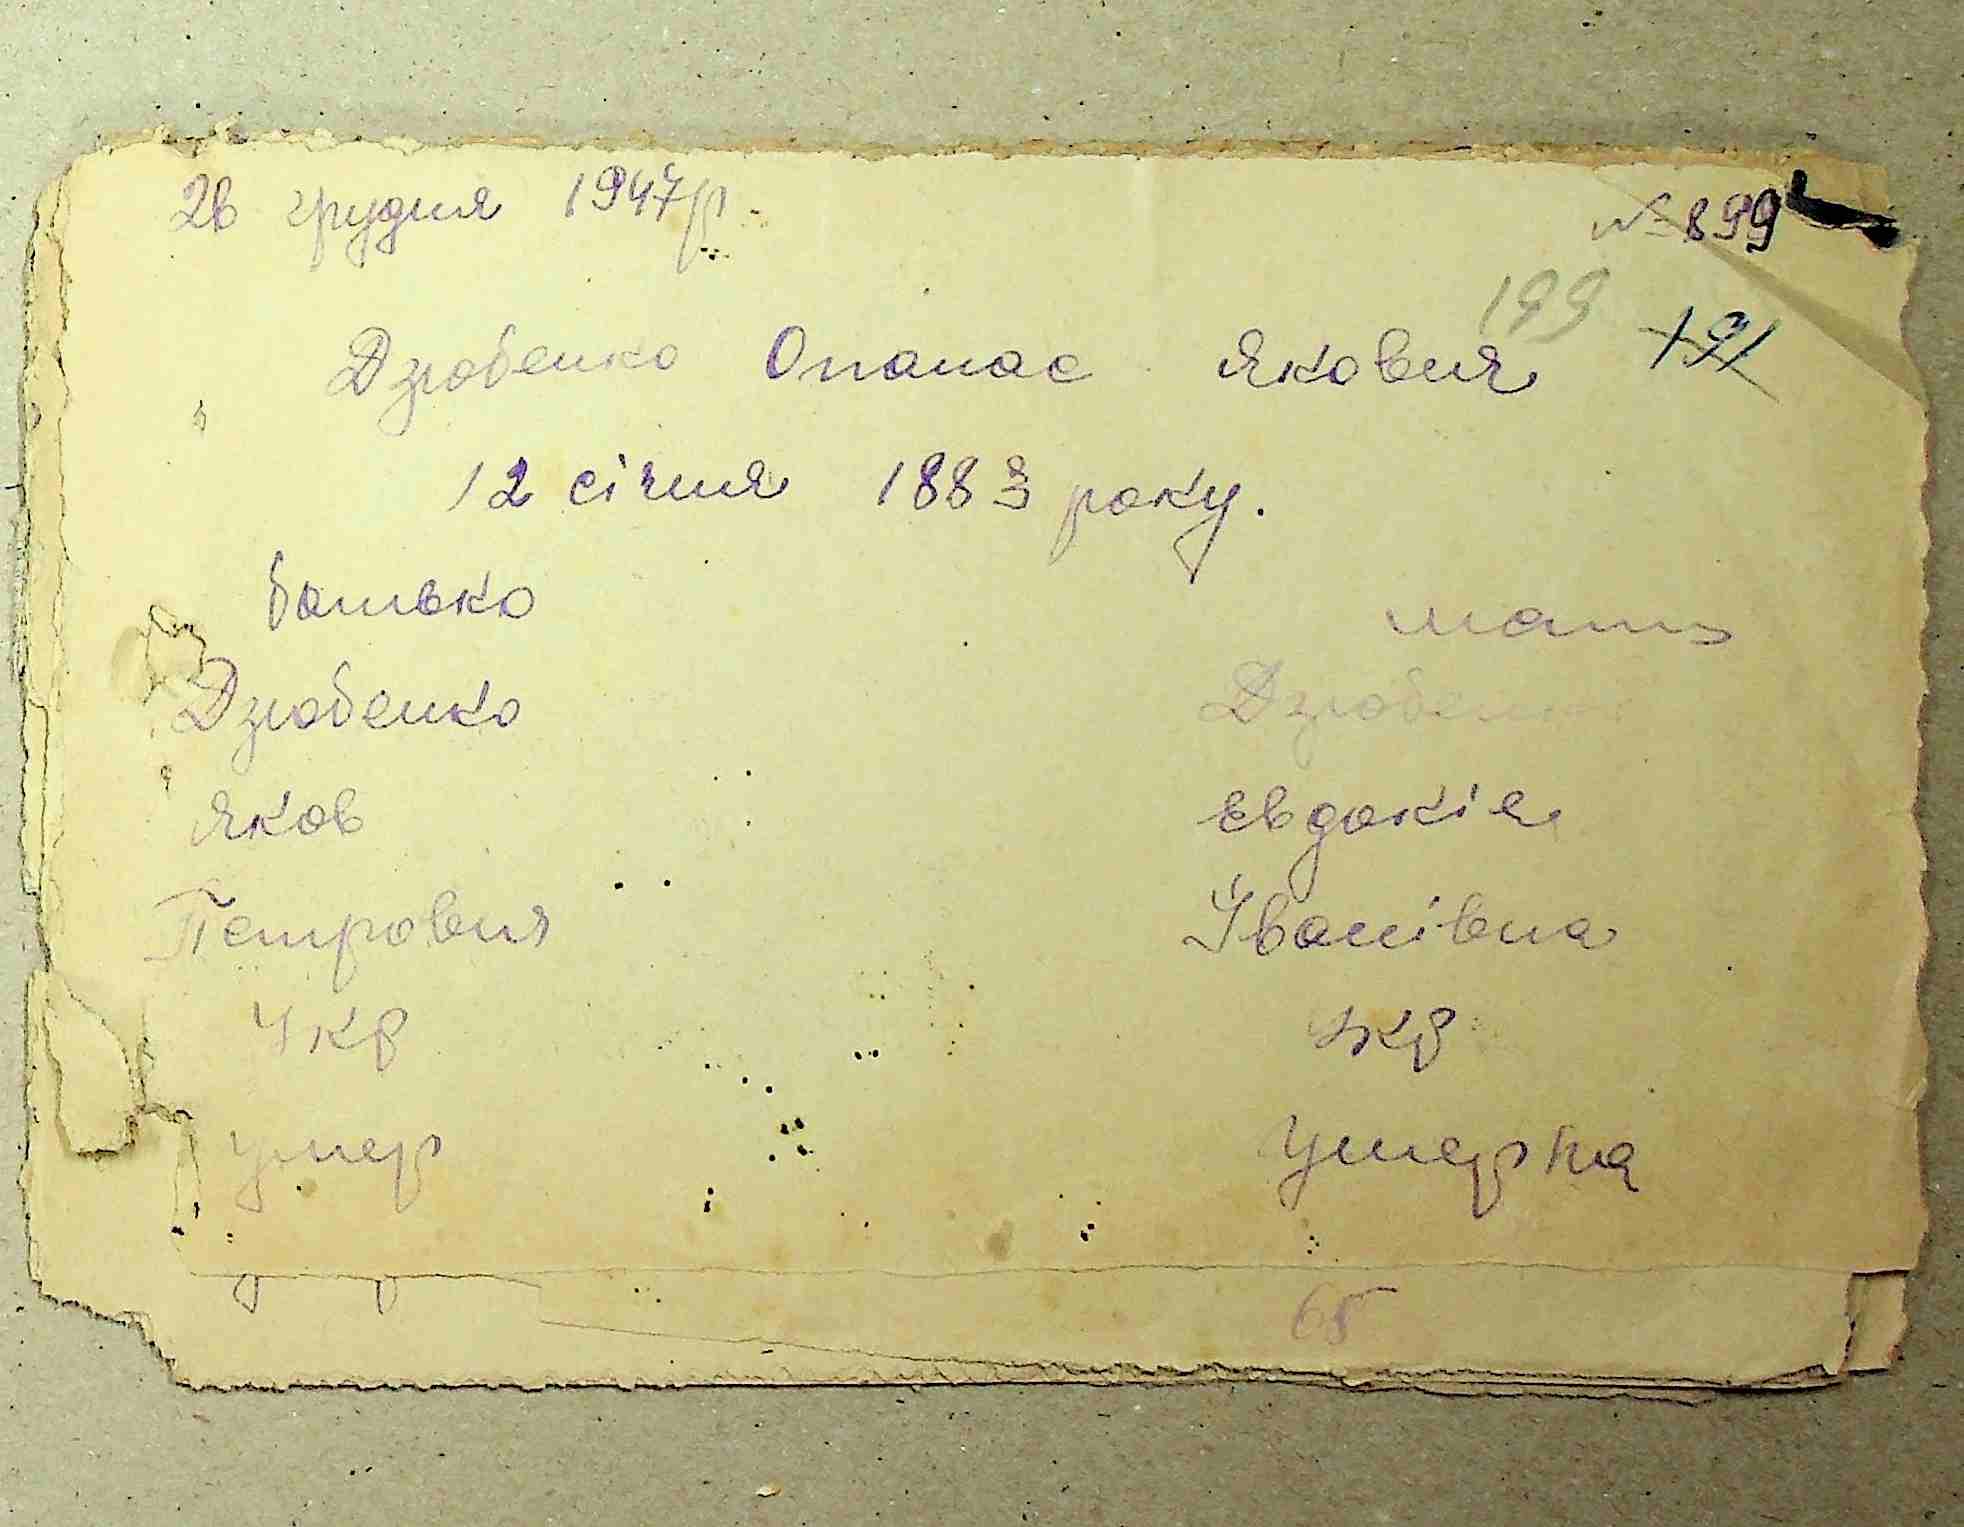 26 грудня 1947р. № 899
199
Дзюбенко Опанас Якович 191
12 січня 1883 року.
батько мати
Дзюбенко Дзюбенко
Яков Евдокія
Петрович Їванівна
Укр Укр
умер умерла
65